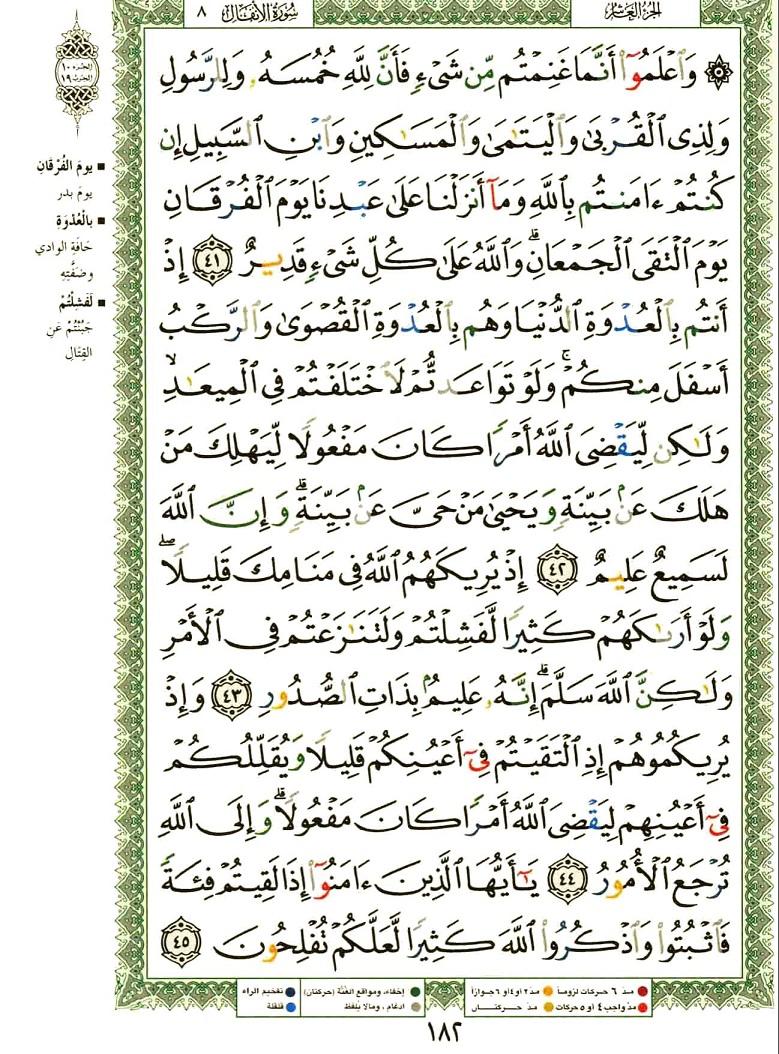 الجزء العاشر
سورة الأنفال ٨
۞ وَٱعۡلَمُوٓاْ أَنَّمَا غَنِمۡتُم مِّن شَىۡءٍ فَأَنَّ لِلَّهِ خُمُسَهُۥ وَلِلرَّسُولِ
وَلِذِى ٱلۡقُرۡبَىٰ وَٱلۡيَتَٰمَىٰ وَٱلۡمَسَٰكِينِ وَٱبۡنِ ٱلسَّبِيلِ إِن
كُنتُمۡ ءَامَنتُم بِٱللَّهِ وَمَآ أَنزَلۡنَا عَلَىٰ عَبۡدِنَا يَوۡمَ ٱلۡفُرۡقَانِ
يَوۡمَ ٱلۡتَقَى ٱلۡجَمۡعَانِۗ وَٱللَّهُ عَلَىٰ كُلِّ شَىۡءٍ قَدِيرٌ ٤١ إِذۡ
أَنتُم بِٱلۡعُدۡوَةِ ٱلدُّنۡيَا وَهُم بِٱلۡعُدۡوَةِ ٱلۡقُصۡوَىٰ وَٱلرَّكۡبُ
أَسۡفَلَ مِنكُمۡۚ وَلَوۡ تَوَاعَدتُّمۡ لَٱخۡتَلَفۡتُمۡ فِى ٱلۡمِيعَٰدِۙ
وَلَٰكِن لِّيَقۡضِىَ ٱللَّهُ أَمۡرًا كَانَ مَفۡعُولًا لِّيَهۡلِكَ مَنۡ
هَلَكَ عَنۢ بَيِّنَةٍ وَيَحۡيَىٰ مَنۡ حَىَّ عَنۢ بَيِّنَةٍۗ وَإِنَّ ٱللَّهَ
لَسَمِيعٌ عَلِيمٌ ٤٢ إِذۡ يُرِيكَهُمُ ٱللَّهُ فِى مَنَامِكَ قَلِيلًاۖ
وَلَوۡ أَرَىٰكَهُمۡ كَثِيرًا لَّفَشِلۡتُمۡ وَلَتَنَٰزَعۡتُمۡ فِى ٱلۡأَمۡرِ
وَلَٰكِنَّ ٱللَّهَ سَلَّمَۗ إِنَّهُۥ عَلِيمُۢ بِذَاتِ ٱلصُّدُورِ ٤٣ وَإِذۡ
يُرِيكُمُوهُمۡ إِذِ ٱلۡتَقَيۡتُمۡ فِىٓ أَعۡيُنِكُمۡ قَلِيلًا وَيُقَلِّلُكُمۡ
فِىٓ أَعۡيُنِهِمۡ لِيَقۡضِىَ ٱللَّهُ أَمۡرًا كَانَ مَفۡعُولًاۗ وَإِلَى ٱللَّهِ
تُرۡجَعُ ٱلۡأُمُورُ ٤٤ يَٰٓأَيُّهَا ٱلَّذِينَ ءَامَنُوٓاْ إِذَا لَقِيتُمۡ فِئَةً
فَٱثۡبُتُواْ وَٱذۡكُرُواْ ٱللَّهَ كَثِيرًا لَّعَلَّكُمۡ تُفۡلِحُونَ ٤٥
الجزء ١٠
الحزب ١٩
■ يومَ الفُرْقانِ
يومَ بدر
■ بالْعُدْوَةِ
حَافَةِ الوادي
وضَفَّتِهِ
■ لَفَشِلْتُمْ
جَبُنْتُمْ عَنِ
القِتَالِ
مدّ ٦ حركات لزوماً ● مدّ ٢ أو ٤ أو ٦ جوازاً
مدّ واجب ٤ أو ٥ حركات ● مدّ حركتان
إخفاء، ومواقع الغُنَّة (حركتان)
ادغام، ومالا يُلفَظ
تفخيم الراء
قلقلة
١٨٢